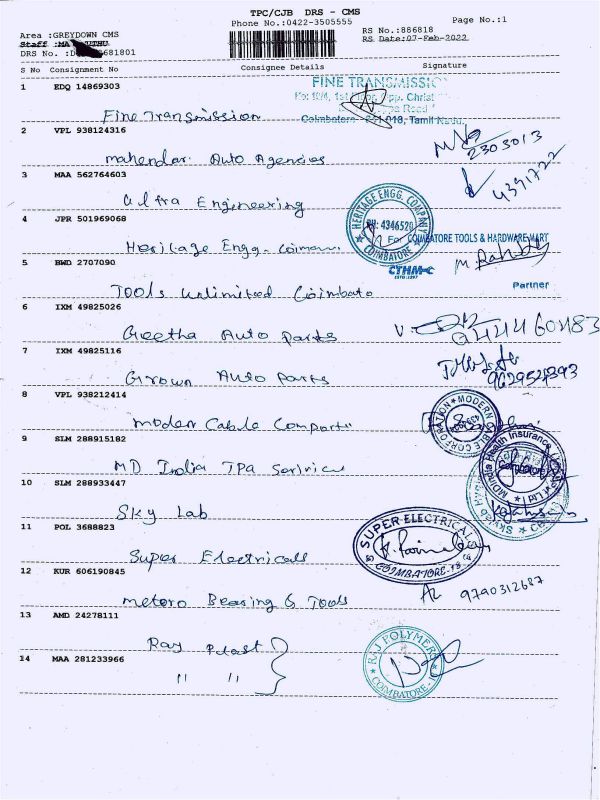 TPC/CJB DRS - CMS
Phone No.:0422-3505555
Page No.:1
Area :GREYDOWN CMS
RS No.:886818
Staff :MA
RS Date:07-Feb-2022
DRS No. :D 681801
S No Consignment No Consignee Details Signature
1 EDQ 14869303
FINE TRANSMISSIO
Opp. Christ
Road
Coimbatore - 641 018, Tamil Nadu.
Fine Transmission
2 VPL 938124316
2303013
Mahendar Auto Agencies
3 MAA 562764603
4391722
Ultra Engineering
HERITAGE ENGG. COMPANY
PH: 4346520
COIMBATORE
4 JPR 501969068
Heritage Engg. Coimam
For COIMBATORE TOOLS & HARDWARE MART
CTHM-C
Partner
5 BWD 2707090
Tools Unlimited Coimbato
6 IXM 49825026
Geetha Auto Parts
7 IXM 49825116
Auto Parts
8 VPL 938212414
MODERN CABLE CORPORATION
Modern Cable
9 SLM 288915182
MDIndia Health Insurance
MD India TPA Service
10 SLM 288933447
Sky Lab
11 POL 3688823
SUPER ELECTRICALS
COIMBATORE-18
Super Electricals
12 KUR 606190845
9790312687
Metoro Bearing & Tools
13 AMD 24278111
Raj Plast
RAJ POLYMERS
COIMBATORE
14 MAA 281233966
" "